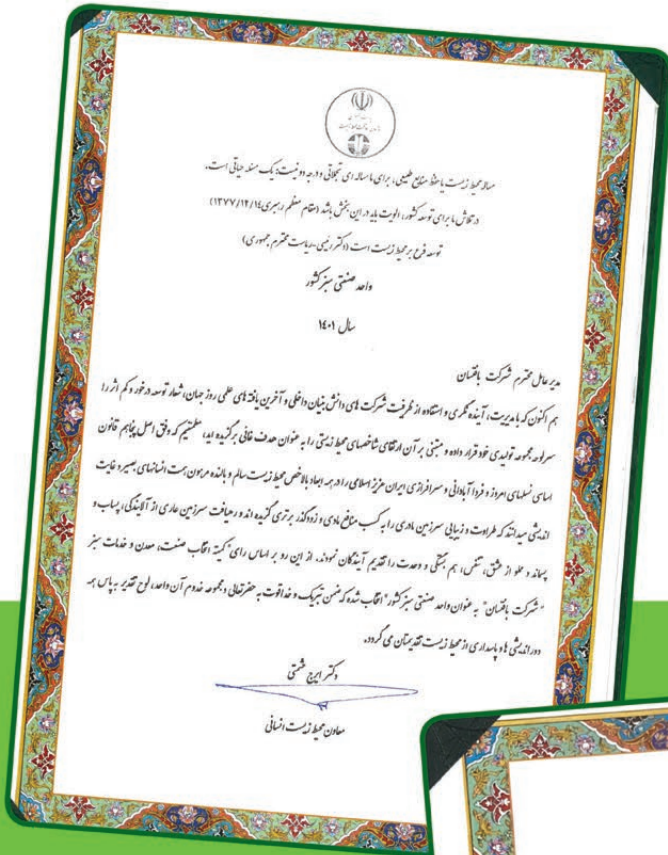 مساله محیط زیست یا حفظ منابع طبیعی، برای ما مساله ای تجملاتی و درجه دو نیست؛ یک مسئله حیاتی است.
در تلاش ما برای توسعه کشور، الویت باید در این بخش باشد (مقام معظم رهبری ۱۳۷۷/۱۲/۱۴)
توسعه فرع بر محیط زیست است (دکتر رئیسی-ریاست محترم جمهوری)
واحد صنعتی سبز کشور
سال ۱۴۰۱
مدیر عامل محترم شرکت بافتسان
هم اکنون که با مدیریت، آینده نگری و استفاده از ظرفیت شرکت های دانش بنیان داخلی و آخرین یافته های علمی روز جهان، شعار توسعه درخور و کم اثر را
سرلوحه مجموعه تولیدی خود قرار داده و مبتنی بر آن ارتقای شاخصهای محیط زیستی را به عنوان هدف غائی برگزیده اید، مطمئنیم که وفق اصل پنجاهم قانون
اساسی نسلهای امروز و فردا آبادانی و سرافرازی ایران عزیز اسلامی را در همه ابعاد بالاخص محیط زیست سالم و بالنده مرهون همت انسانهای بصیر و غایت
اندیشی میدانند که طراوت و زیبایی سرزمین مادری را به کسب منافع مادی و زودگذر برتری گزیده اند و رهیافت سرزمین عاری از آلایندگی، پساب و
پسماند و مملو از عشق، تنفس، هم بستگی و وحدت را تقدیم آیندگان نمودند. از این رو بر اساس رای "کمیته انتخاب صنعت، معدن و خدمات سبز
"شرکت بافتسان" به عنوان واحد صنعتی سبز کشور" انتخاب شده که ضمن تبریک و خداقوت به حضرتعالی و مجموعه خدوم آن واحد، لوح تقدیر به پاس همه
دوراندیشی ها و پاسداری از محیط زیست تقدیمتان می گردد.
دکتر ایرج حشمتی
معاون محیط زیست انسانی